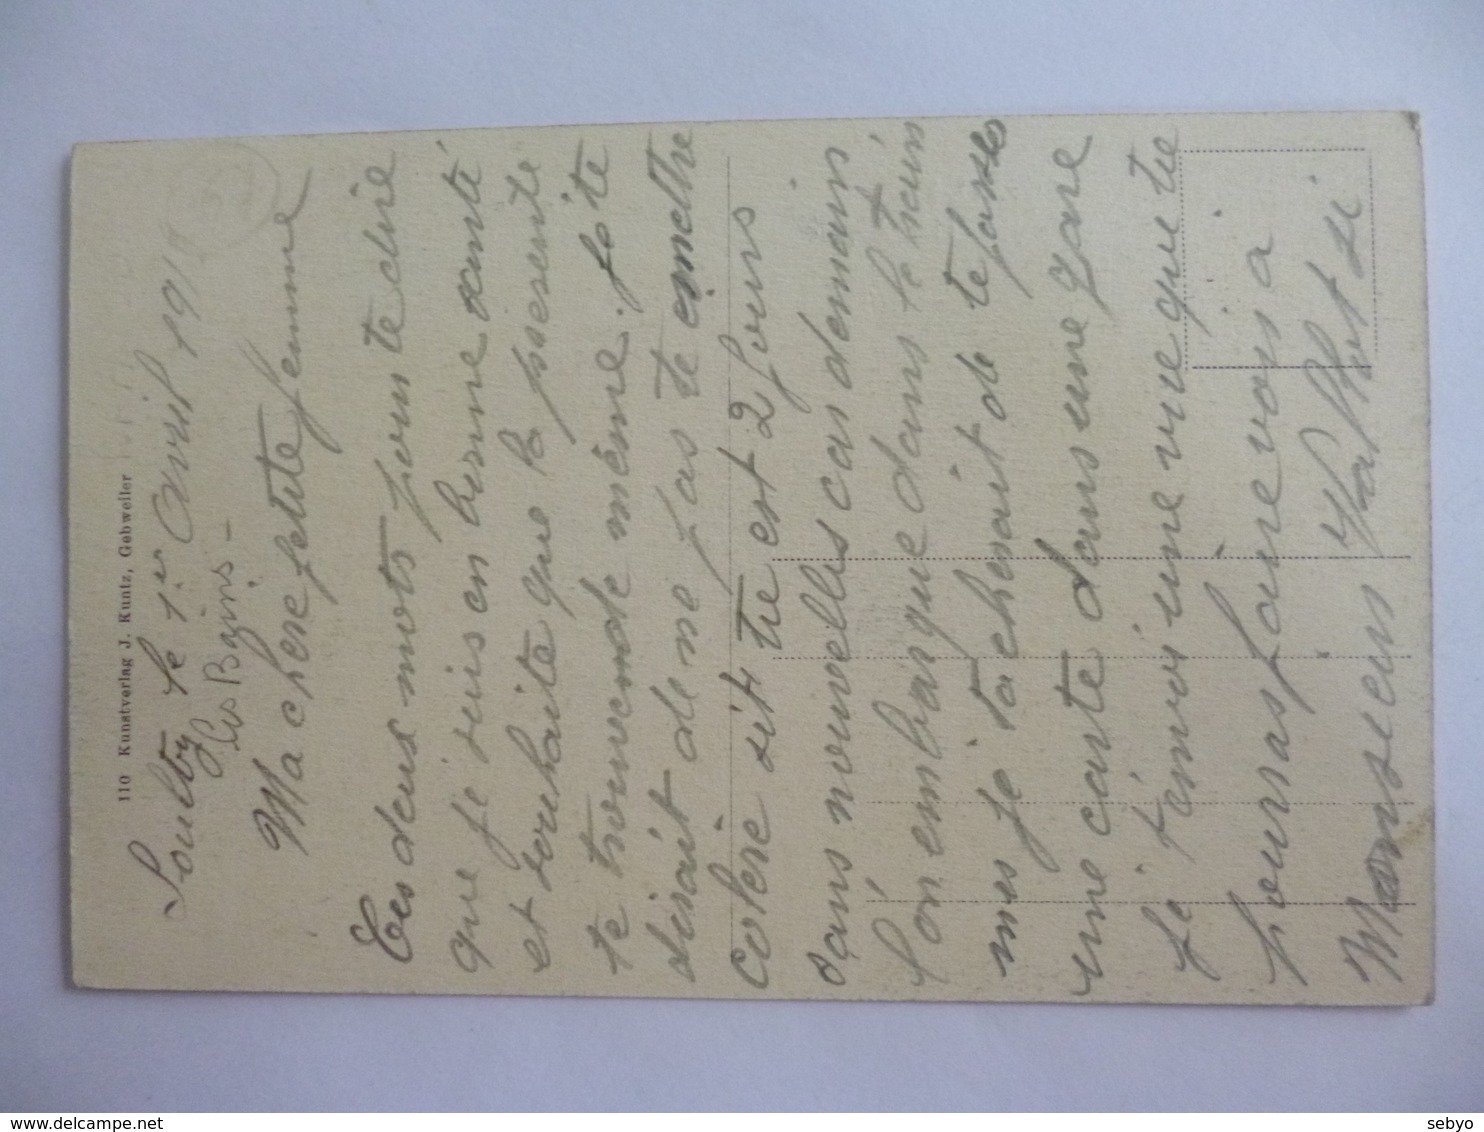 110 Kunstverlag J. Kuntz, Gebweiler
Soultz le 1er Avril 191
les Bains -
Ma chere petite femme
Ces deux mots pour te dire
que je suis en bonne santé
et souhaite que la presente
te trouve de même. fote
disait de ne pas te emettre
colère si t tu est 2 jours
sans nouvelles car demain
l'on embarque dans le train
mes je tacherait de te passer
une carte dans une gare
je t'envoi une vue que tu
pourras faire vois a
Monsieur Walthet si
delcampe.net
sebyo